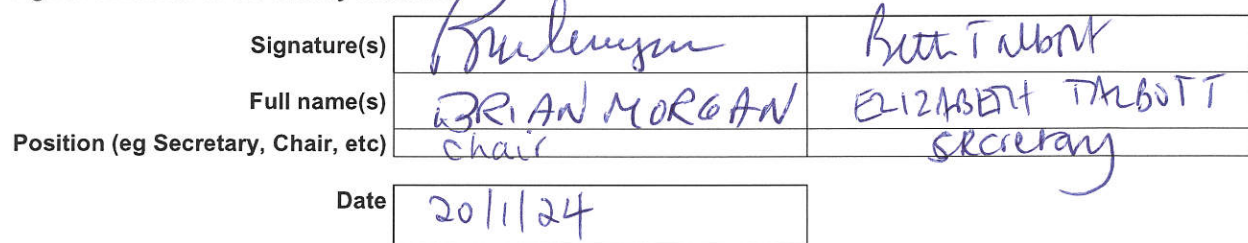 Signature(s) Beth Talbott
Full name(s) BRIAN MORGAN ELIZABETH TALBOTT
Position (eg Secretary, Chair, etc) chair secretary
Date 20/1/24